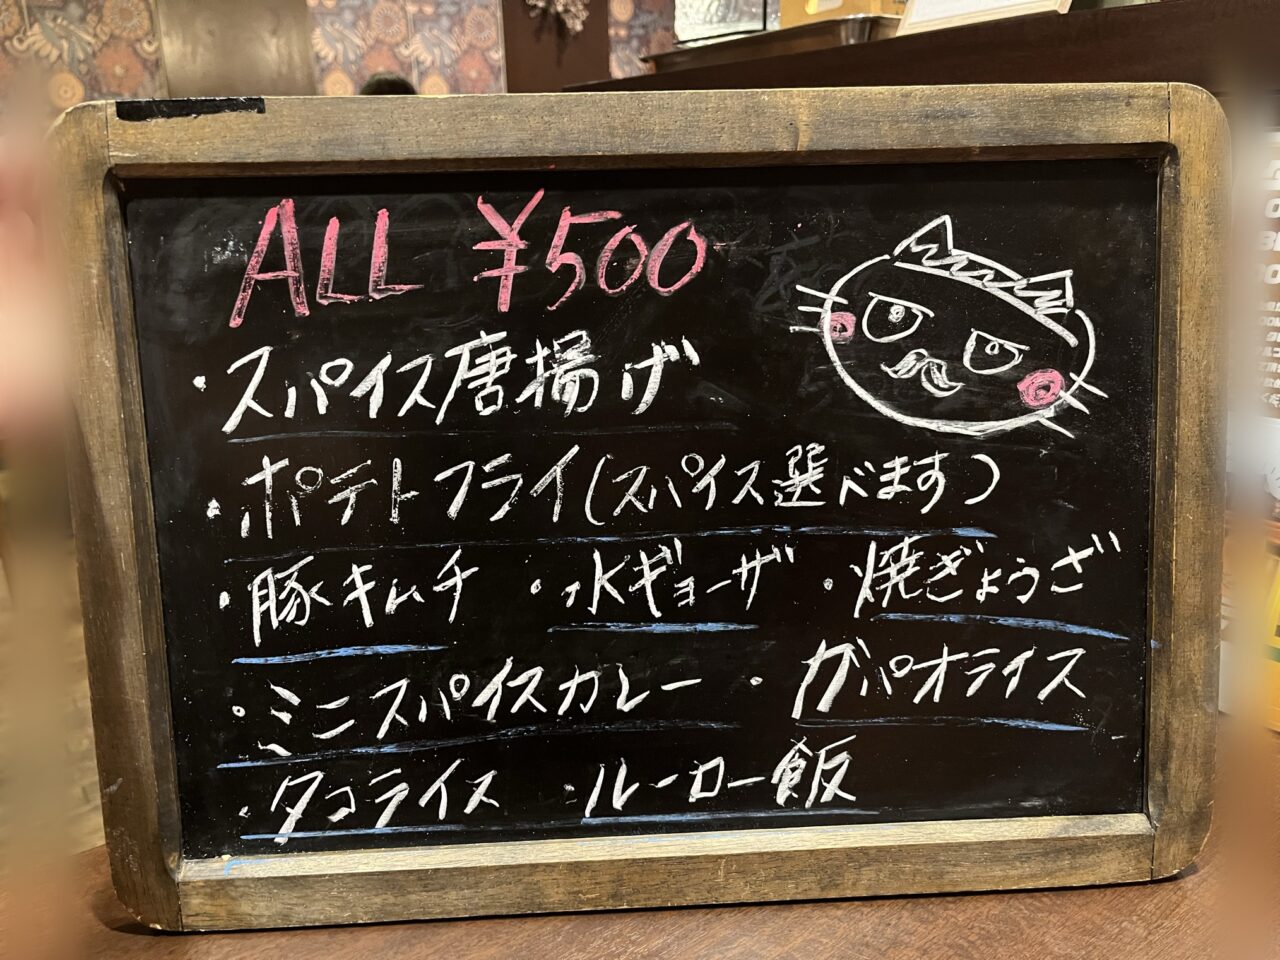 ALL ¥500
・スパイス唐揚げ
・ポテトフライ(スパイス選べます)
・豚キムチ ・水ギョーザ ・焼ぎょうざ
・ミニスパイスカレー ・ガパオライス
・タコライス ・ルーロー飯